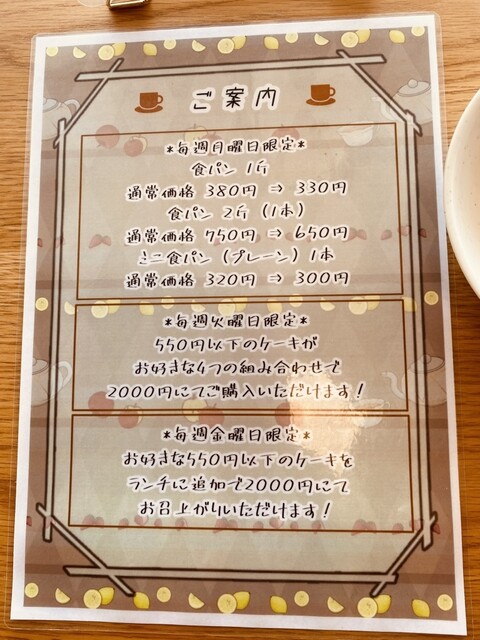 ご案内
*毎週月曜日限定*
食パン 1斤
通常価格 380円 ⇒ 330円
食パン 2斤 (1本)
通常価格 750円 ⇒ 650円
ミニ食パン (プレーン) 1本
通常価格 320円 ⇒ 300円
*毎週火曜日限定*
550円以下のケーキが
お好きな4つの組み合わせで
2000円にてご購入いただけます!
*毎週金曜日限定*
お好きな550円以下のケーキを
ランチに追加で2000円にて
お召上がりいただけます!